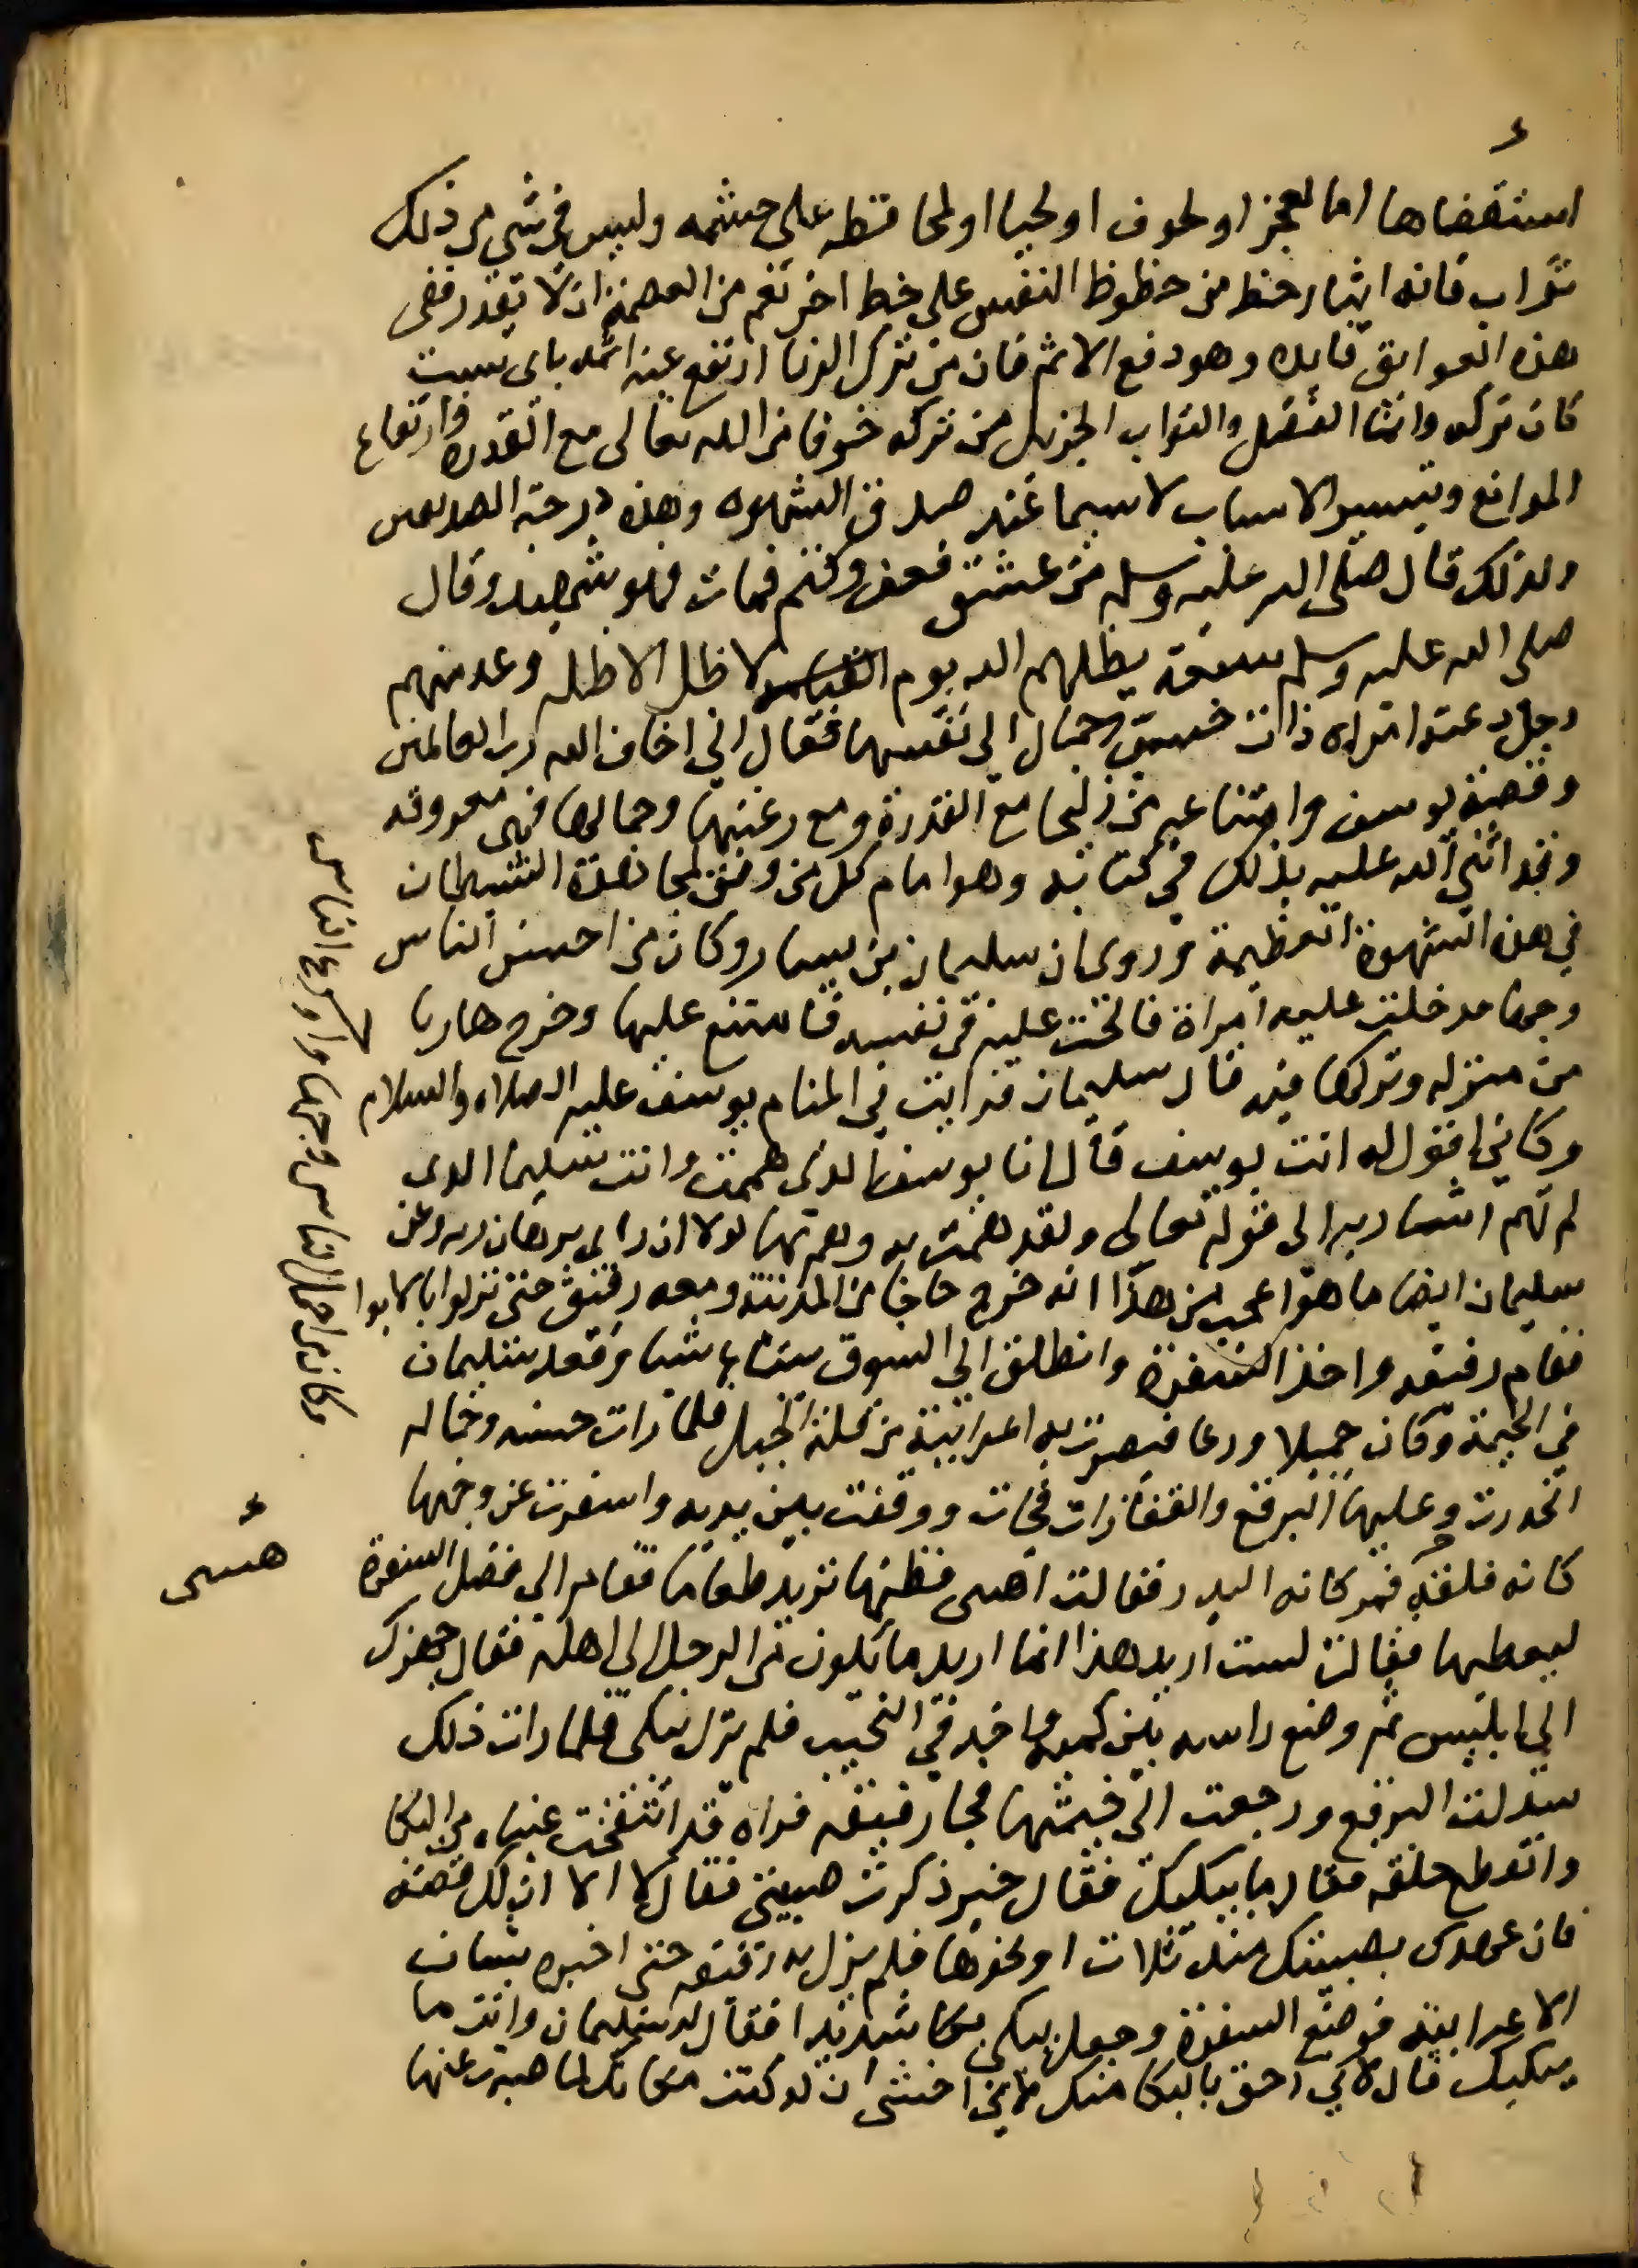 استقضاها اما لعجز او لخوف او لحيا او لمحافظه على حشمه وليس في شي من ذلك
ثواب فانه ايثار حظ من حظوظ النفس على حظ اخر نعم من العصمة ان لا يقدر ففى
هذه العوايق فايده وهو دفع الاثم فان من ترك الزنا ارتفع عنه اثمه باى سبب
كان تركه وانما الفضل والثواب الجزيل من تركه خوفا من الله تعالى مع القدره وارتفاع
الموانع وتيسير الاسباب لاسيما عند صدق الشهوه وهذه درجة الصديقين
ولذلك قال صلى الله عليه وسلم من عشق فعف وكتم فمات فهو شهيد وقال
صلى الله عليه وسلم سبعة يظلهم الله يوم القيامه لا ظل الا ظله وعد منهم
رجل دعته امراه ذات حسن وجمال الى نفسها فقال اني اخاف الله رب العالمين
وقصة يوسف وامتناعه من زليخا مع القدرة ومع رغبتها وجمالها فهى معروفه
وقد اثنى الله عليه بذلك في كتابه وهو امام كل من وفق لمجاهدة الشيطان
في هذه الشهوة العظيمة وروى ان سليمان بن يسار وكان من احسن الناس
وجها دخلت عليه امراة فالحت عليه في نفسه فامتنع عليها وخرج هاربا
من منزله وتركها فيه قال سليمان فرايت في المنام يوسف عليه الصلاه والسلام
وكاني اقول له انت يوسف قال انا يوسف الذى هممت وانت سليما الذى
لم تهم اشار به الى قوله تعالى ولقد همت به وهم بها لولا ان راى برهان ربه وعن
سليمان ايضا ما هو اعجب من هذا انه خرج حاجا من المدينة ومعه رفيق حتى نزلوا بالابوا
فقام رفيقه واخذ السفرة وانطلق الى السوق يبتاع شيا وقعد سليمان
في الخيمة وكان جميلا ورعا فبصرت به اعرابية من قلة الجبل فلما رات حسنه وجماله
انحدرت وعليها البرقع والقفازات فجات ووقفت بين يديه واسفرت عن وجهها
كانه فلقة قمر كانه البدر فقالت اهسى فظنها تريد طعاما فقام الى فضل السفرة
ليعطيها فقالت لست اريد هذا انما اريد ما يكون من الرجل الى اهله فقال جهزك
الى ابليس ثم وضع راسه بين كميه واخذ في النحيب فلم يزل يبكى فلما رات ذلك
سدلت البرقع ورجعت الى خيمتها فجا رفيقه فراه قد انتفخت عيناه من البكا
وانقطع حلقه فقال ما يبكيك فقال خير ذكرت صبيتى فقال لا الا ان لك قصة
فان عهدك بصبيتك منذ ثلاث او نحوها فلم يزل به رفيقه حتى اخبره بشان
الاعرابية فوضع السفرة وجعل يبكى بكا شديدا فقال له سليمان وانت ما
يبكيك قال لاني احق بالبكا منك لاني اخشى ان لو كنت مكانك لما صبرت عنها
هسى